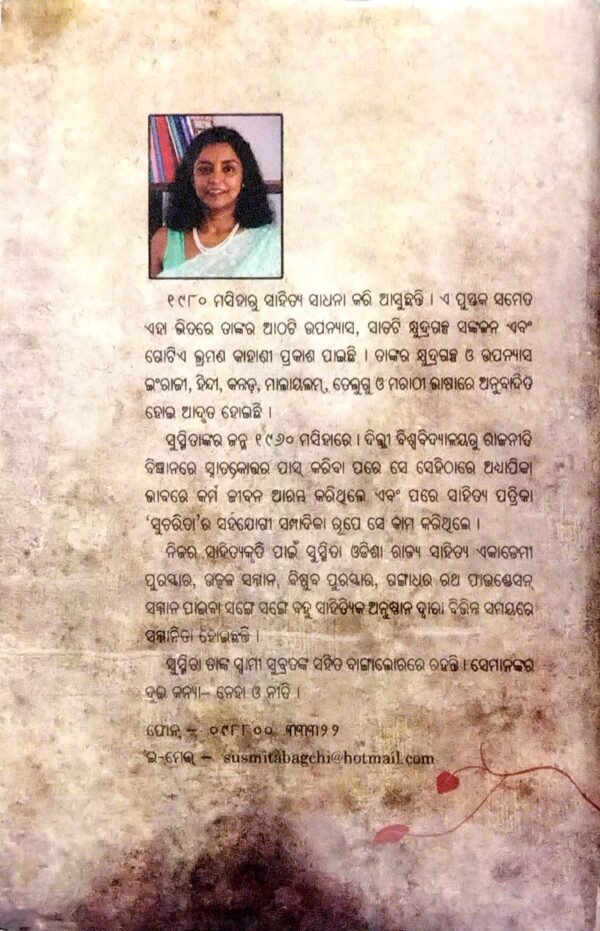 ୧୯୮୦ ମସିହାରୁ ସାହିତ୍ୟ ସାଧନା କରି ଆସୁଛନ୍ତି । ଏ ପୁସ୍ତକ ସମେତ
ଏହା ଭିତରେ ତାଙ୍କର ଆଠଟି ଉପନ୍ୟାସ, ସାତଟି କ୍ଷୁଦ୍ରଗଳ୍ପ ସଙ୍କଳନ ଏବଂ
ଗୋଟିଏ ଭ୍ରମଣ କାହାଣୀ ପ୍ରକାଶ ପାଇଛି । ତାଙ୍କର କ୍ଷୁଦ୍ରଗଳ୍ପ ଓ ଉପନ୍ୟାସ
ଇଂରାଜୀ, ହିନ୍ଦୀ, କନ୍ନଡ଼, ମାଲାୟଲମ୍, ତେଲୁଗୁ ଓ ମରାଠୀ ଭାଷାରେ ଅନୁବାଦିତ
ହୋଇ ଆଦୃତ ହୋଇଛି ।
ସୁସ୍ମିତାଙ୍କର ଜନ୍ମ ୧୯୬୦ ମସିହାରେ । ଦିଲ୍ଲୀ ବିଶ୍ୱବିଦ୍ୟାଳୟରୁ ରାଜନୀତି
ବିଜ୍ଞାନରେ ସ୍ନାତକୋତ୍ତର ପାସ୍ କରିବା ପରେ ସେ ସେହିଠାରେ ଅଧ୍ୟାପିକା
ଭାବରେ କର୍ମ ଜୀବନ ଆରମ୍ଭ କରିଥିଲେ ଏବଂ ପରେ ସାହିତ୍ୟ ପତ୍ରିକା
‘ସୁଚରିତା’ର ସହଯୋଗୀ ସମ୍ପାଦିକା ରୂପେ ସେ କାମ କରିଥିଲେ ।
ନିଜର ସାହିତ୍ୟକୃତି ପାଇଁ ସୁସ୍ମିତା ଓଡିଶା ରାଜ୍ୟ ସାହିତ୍ୟ ଏକାଡେମୀ
ପୁରସ୍କାର, ଉତ୍କଳ ସମ୍ମାନ, ବିଷୁବ ପୁରସ୍କାର, ଗଙ୍ଗାଧର ରଥ ଫାଉଣ୍ଡେସନ୍
ସମ୍ମାନ ପାଇବା ସଙ୍ଗେ ସଙ୍ଗେ ବହୁ ସାହିତ୍ୟିକ ଅନୁଷ୍ଠାନ ଦ୍ୱାରା ବିଭିନ୍ନ ସମୟରେ
ସମ୍ମାନିତା ହୋଇଛନ୍ତି ।
ସୁସ୍ମିତା ତାଙ୍କ ସ୍ୱାମୀ ସୁବ୍ରତଙ୍କ ସହିତ ବାଙ୍ଗାଲୋରରେ ରହନ୍ତି । ସେମାନଙ୍କର
ଦୁଇ କନ୍ୟା– ନେହା ଓ ନୀତି ।
ଫୋନ୍ – ୦୯୮୮୦୦ ୩୩୩୨୨
ଇ-ମେଲ୍ – susmitabagchi@hotmail.com